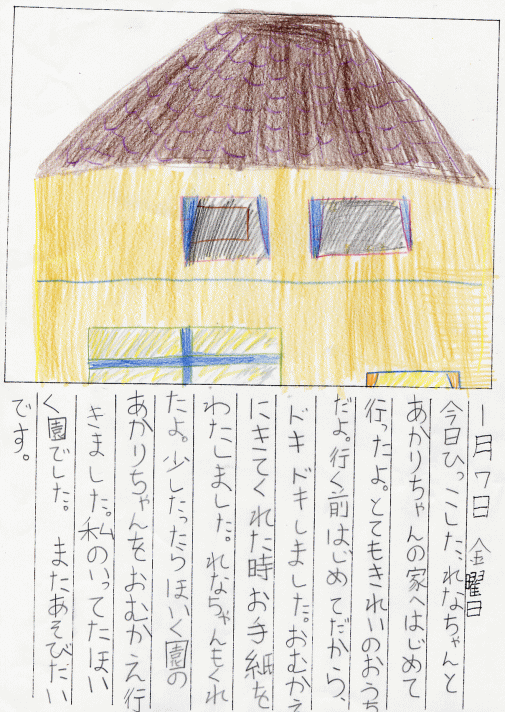 1月7日 金曜日
今日ひっこした、れなちゃんと
あかりちゃんの家へはじめて
行ったよ。とてもきれいのおうち
だよ。行く前はじめてだから、
ドキドキしました。おむかえ
にきてくれた時お手紙を
わたしました。れなちゃんもくれ
たよ。少したったらほいく園の
あかりちゃんをおむかえ行
きました。私のいってたほい
く園でした。 またあそびたい
です。